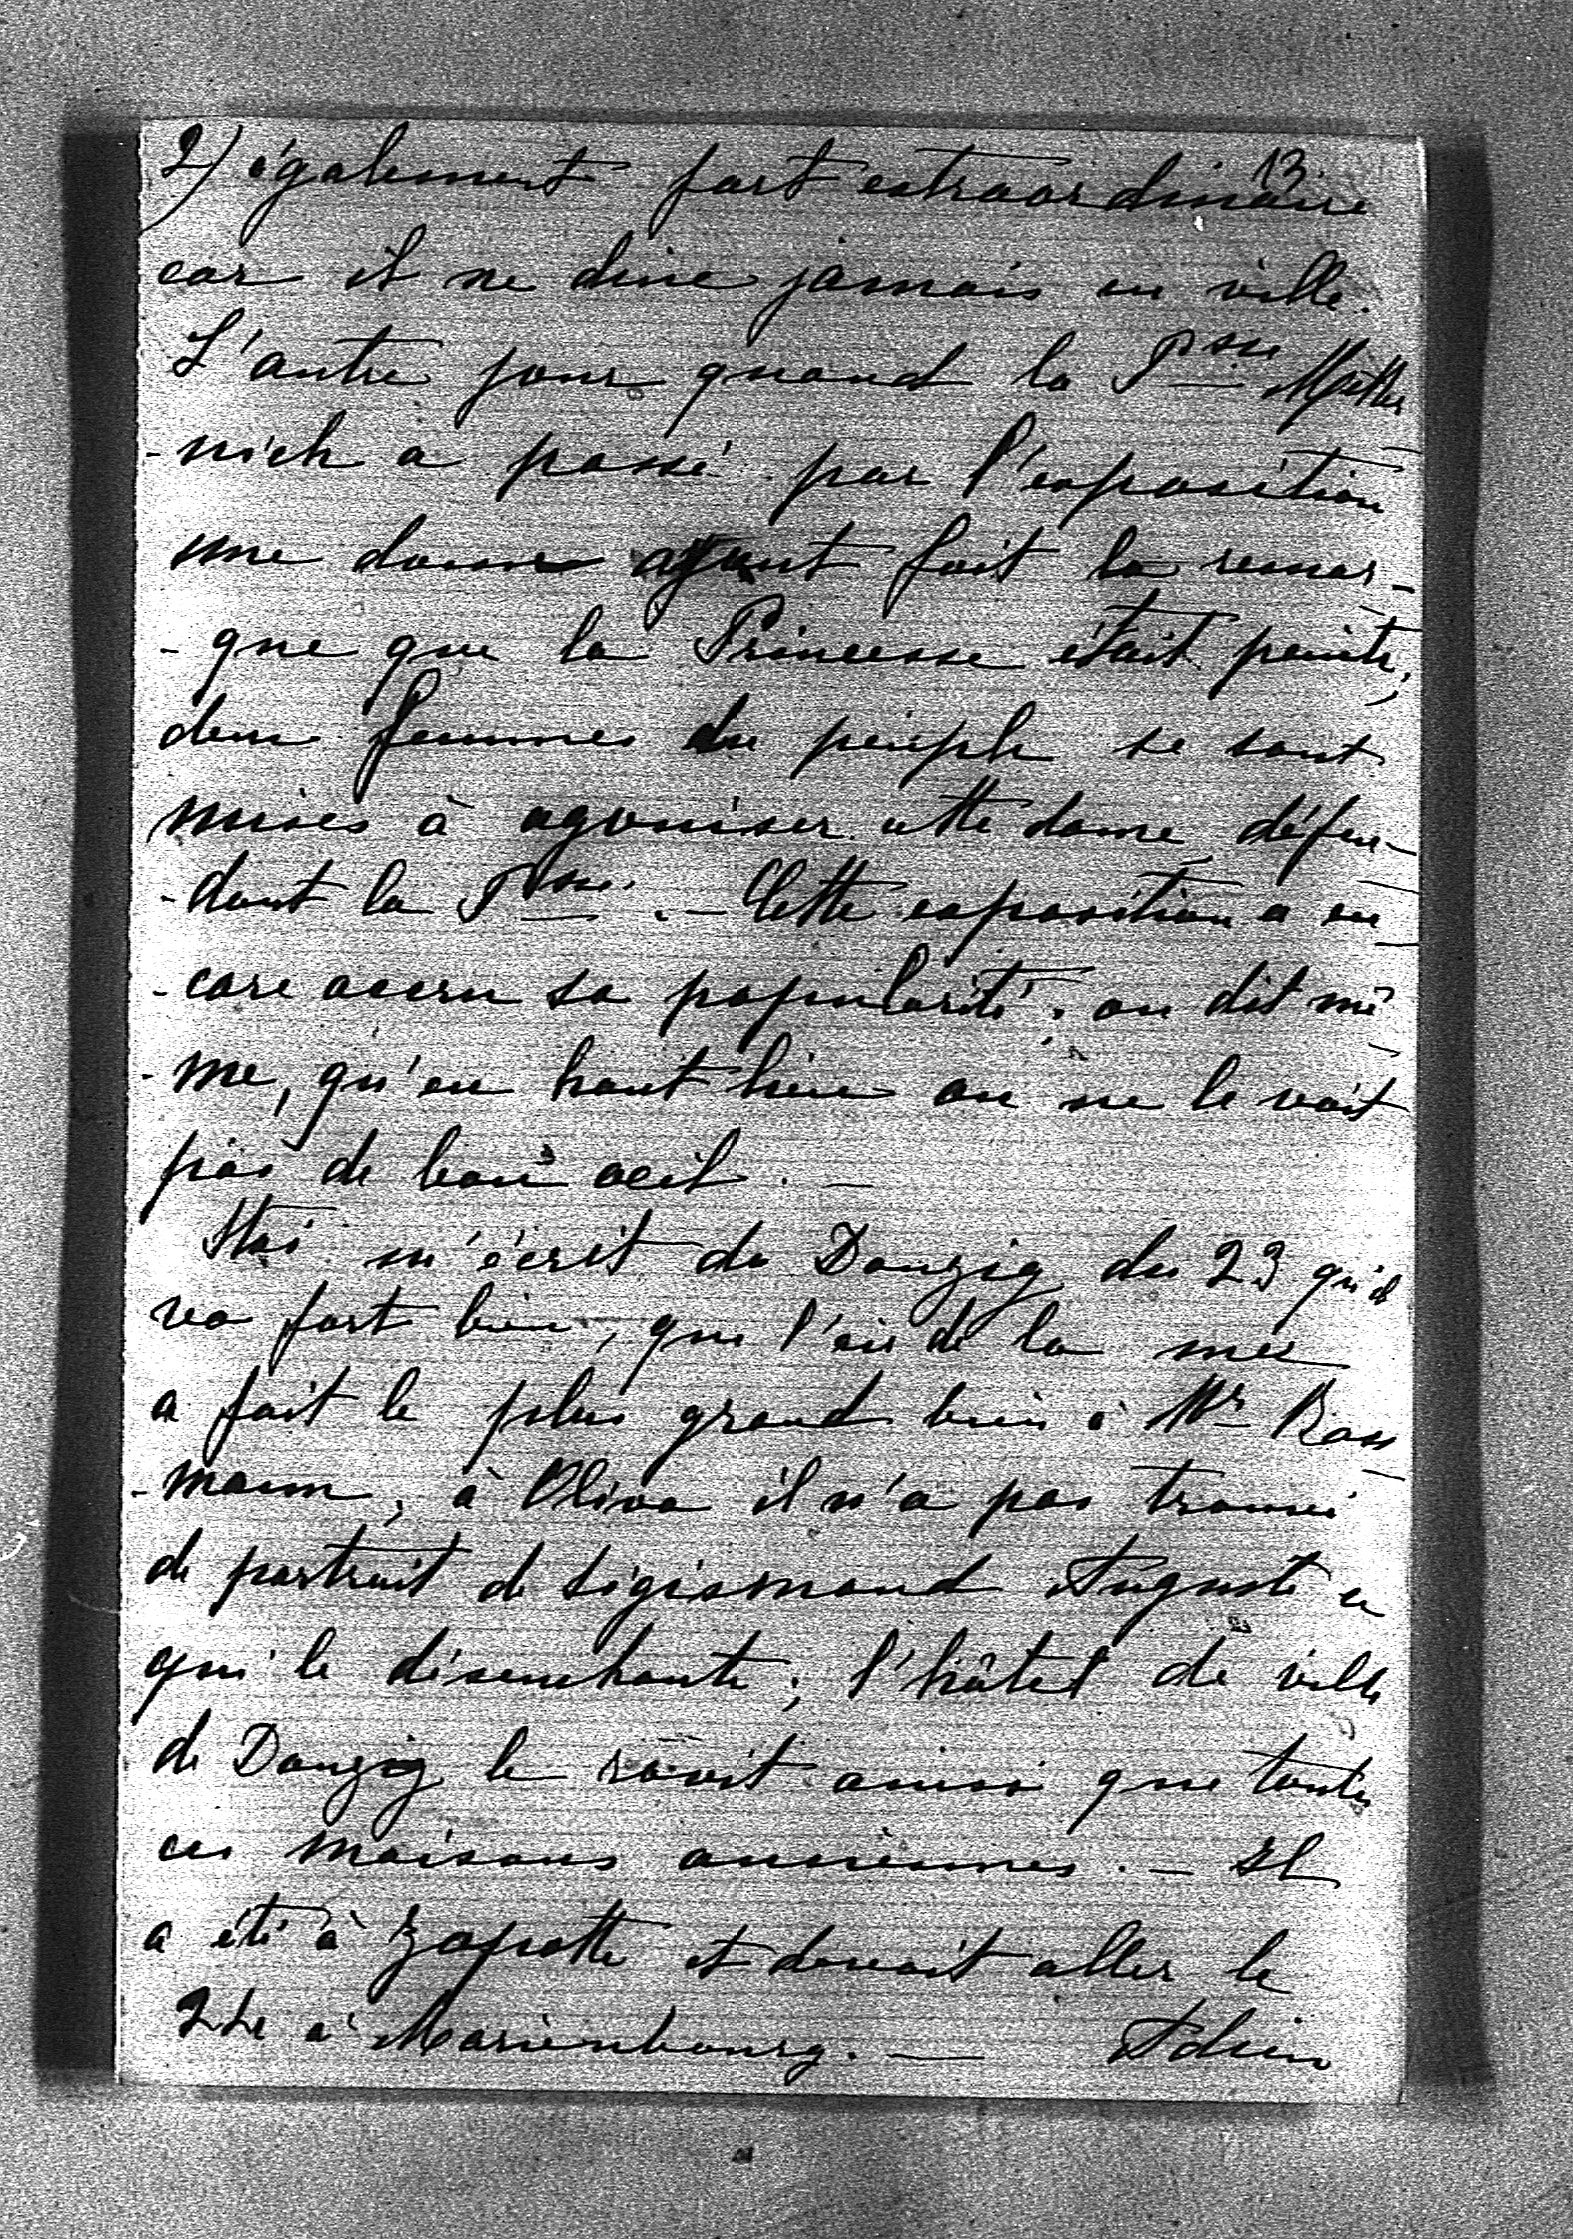 13
2) également fort extraordinaire
car il ne dine jamais en ville.
L'autre jour quand la Psse Metter
-nich a passé par l'exposition
une dame ayant fait la remar-
-que que la Princesse était peinte,
deux femmes du peuple se sont
mises à agoniser cette dame, défen-
-dant la Psse. — Cette exposition a en
-core accru sa popularité; on dit mê
-me, qu'en haut lieu on ne le voit
pas de bon oeil. —
Stas m'écrit de Danzig du 23 qu'il
va fort bien, que l'air de la mer
a fait le plus grand bien à Mr Ross
-mann, à Oliva il n'a pas trouvé
de portrait de Sigismond Auguste ce
qui le désenchante; l'hôtel de ville
de Danzig le ravit ainsi que toutes
ces maisons anciennes. — Il
a été à Zoppotte et devait aller le
24 à Marienbourg. — Adieu